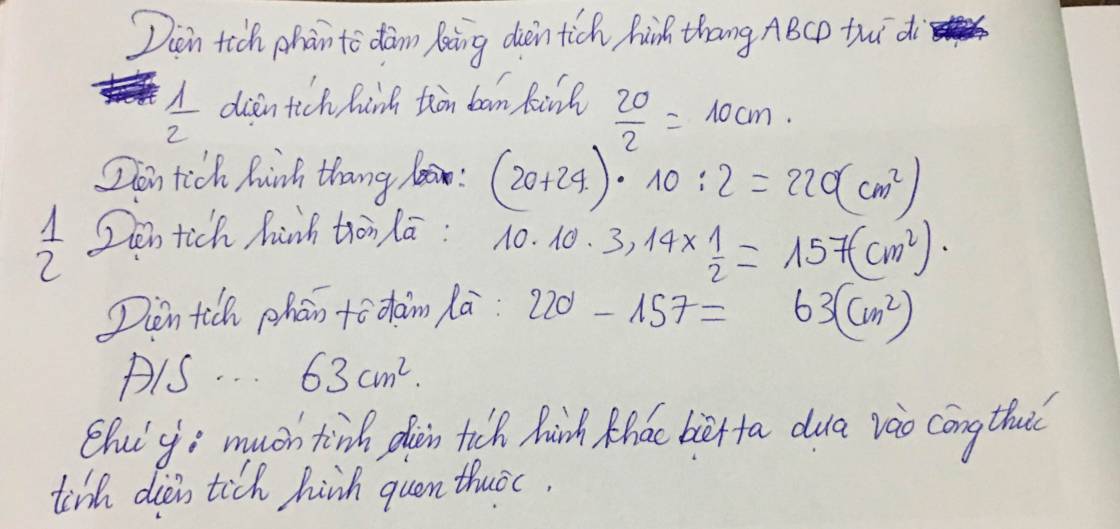 Diện tích phần tô đậm bằng diện tích hình thang ABCD trừ đi
1/2 diện tích hình tròn bán kính 20/2 = 10cm.
Diện tích hình thang : (20+24) . 10 : 2 = 220(cm²)
1/2 Diện tích hình tròn là : 10.10.3,14 x 1/2 = 157(cm²).
Diện tích phần tô đậm là : 220 - 157 = 63(cm²)
Đ/S ... 63 cm².
Chú ý: muốn tính diện tích hình khác biệt ta dựa vào công thức
tính diện tích hình quen thuộc.